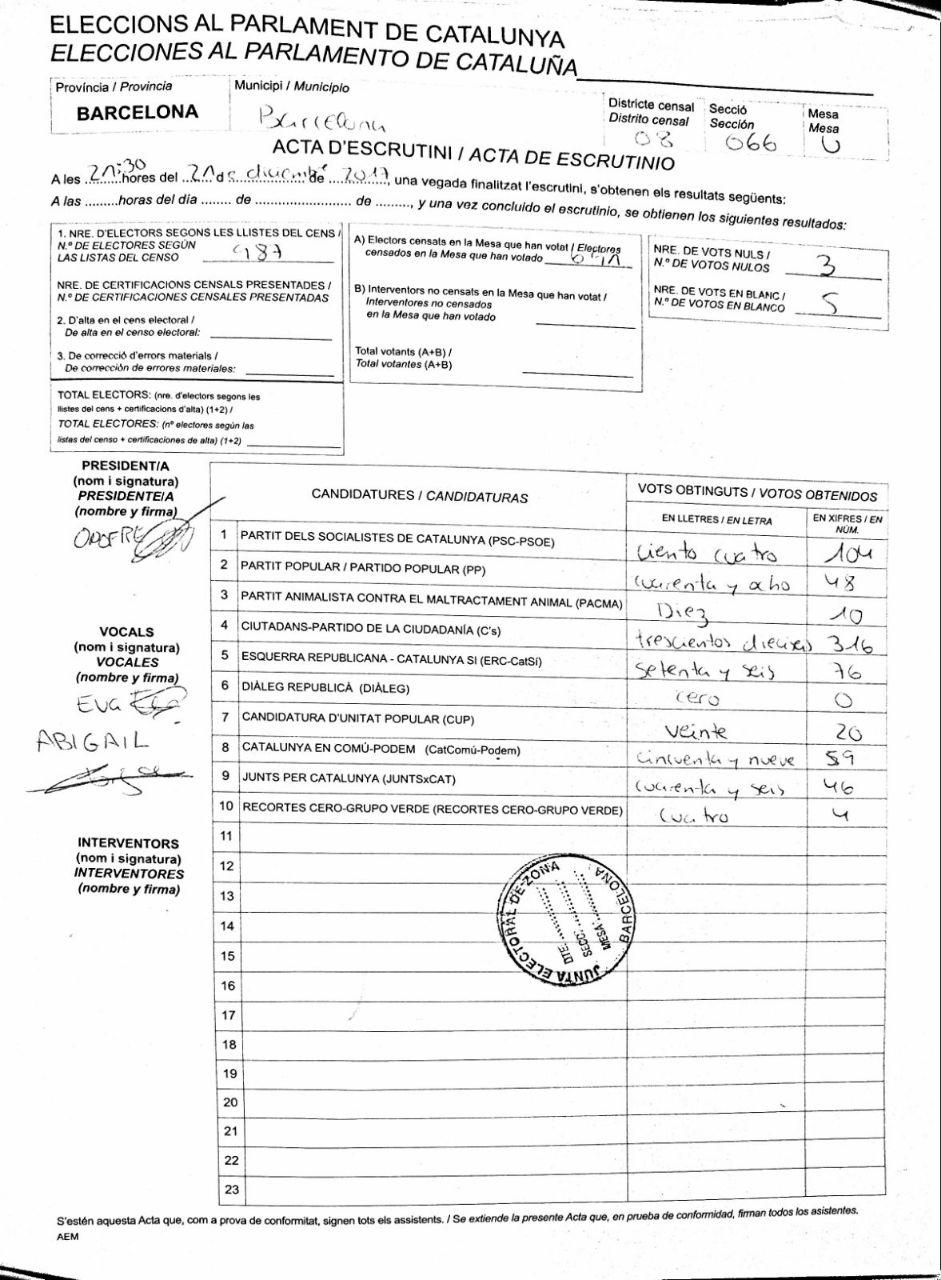 ELECCIONS AL PARLAMENT DE CATALUNYA
ELECCIONES AL PARLAMENTO DE CATALUÑA
Província / Provincia
BARCELONA
Municipi / Municipio
Barcelona
Districte censal
Distrito censal
08
Secció
Sección
066
Mesa
Mesa
U
ACTA D'ESCRUTINI / ACTA DE ESCRUTINIO
A les 21:30 hores del 21 de diciembre de 2017, una vegada finalitzat l'escrutini, s'obtenen els resultats següents:
A las .........horas del día ....... de ........................ de ........., y una vez concluido el escrutinio, se obtienen los siguientes resultados:
1. NRE. D'ELECTORS SEGONS LES LLISTES DEL CENS /
N.º DE ELECTORES SEGÚN
LAS LISTAS DEL CENSO
NRE. DE CERTIFICACIONS CENSALS PRESENTADES /
N.º DE CERTIFICACIONES CENSALES PRESENTADAS
2. D'alta en el cens electoral /
De alta en el censo electoral:
3. De correcció d'errors materials /
De corrección de errores materiales:
TOTAL ELECTORS: (nre. d'electors segons les
llistes del cens + certificacions d'alta) (1+2) /
TOTAL ELECTORES: (nº electores según las
listas del censo + certificaciones de alta) (1+2)
A) Electors censats en la Mesa que han votat / Electores
censados en la Mesa que han votado
B) Interventors no censats en la Mesa que han votat /
Interventores no censados
en la Mesa que han votado
Total votants (A+B) /
Total votantes (A+B)
NRE. DE VOTS NULS /
N.º DE VOTOS NULOS 3
NRE. DE VOTS EN BLANC /
N.º DE VOTOS EN BLANCO 5
PRESIDENT/A
(nom i signatura)
PRESIDENTE/A
(nombre y firma)
ONOFRE
VOCALS
(nom i signatura)
VOCALES
(nombre y firma)
EVA
ABIGAIL
INTERVENTORS
(nom i signatura)
INTERVENTORES
(nombre y firma)
CANDIDATURES / CANDIDATURAS
VOTS OBTINGUTS / VOTOS OBTENIDOS
EN LLETRES / EN LETRA
EN XIFRES / EN
NÚM.
1 PARTIT DELS SOCIALISTES DE CATALUNYA (PSC-PSOE) ciento cuatro 104
2 PARTIT POPULAR / PARTIDO POPULAR (PP) cuarenta y ocho 48
3 PARTIT ANIMALISTA CONTRA EL MALTRACTAMENT ANIMAL (PACMA) Diez 10
4 CIUTADANS-PARTIDO DE LA CIUDADANÍA (C's) trescientos dieciseis 316
5 ESQUERRA REPUBLICANA - CATALUNYA SI (ERC-CatSí) setenta y seis 76
6 DIÀLEG REPUBLICÀ (DIÀLEG) cero 0
7 CANDIDATURA D'UNITAT POPULAR (CUP) veinte 20
8 CATALUNYA EN COMÚ-PODEM (CatComú-Podem) cincuenta y nueve 59
9 JUNTS PER CATALUNYA (JUNTSxCAT) cuarenta y seis 46
10 RECORTES CERO-GRUPO VERDE (RECORTES CERO-GRUPO VERDE) cuatro 4
11
12
13
14
15
16
17
18
19
20
21
22
23
JUNTA ELECTORAL DE ZONA
BARCELONA
DTE:
SECC:
MESA:
S'estén aquesta Acta que, com a prova de conformitat, signen tots els assistents. / Se extiende la presente Acta que, en prueba de conformidad, firman todos los asistentes.
AEM